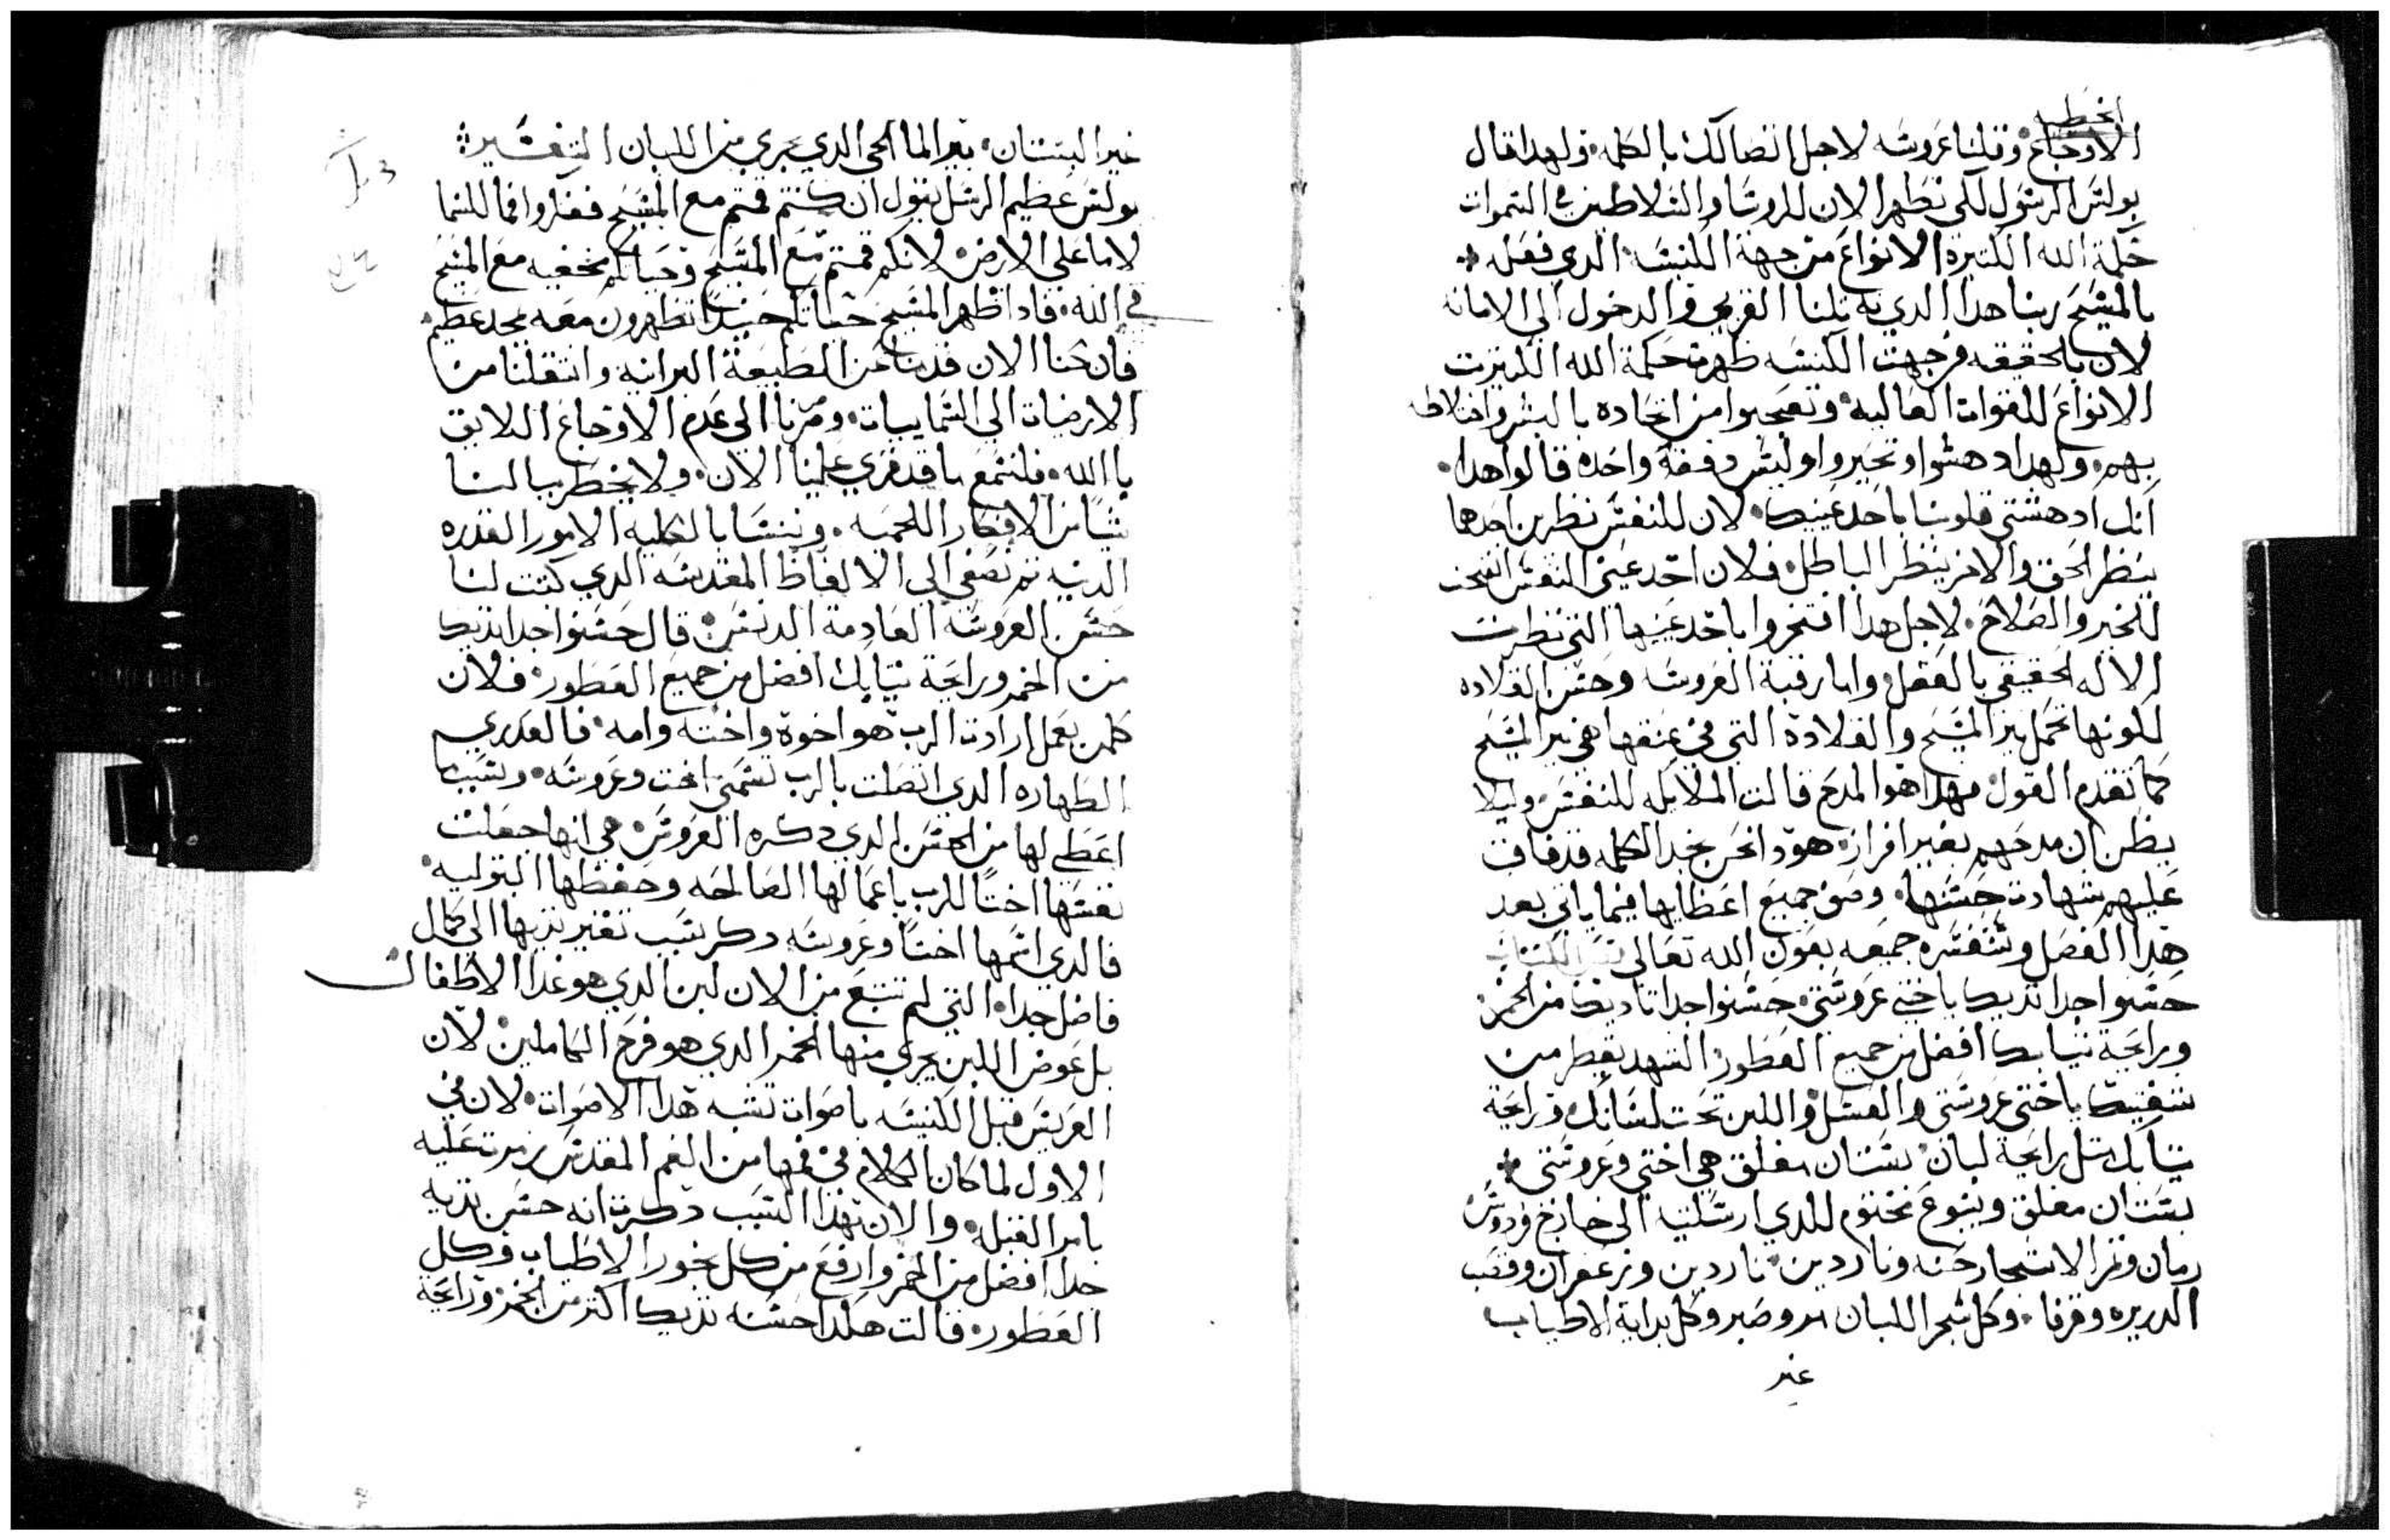 الخطيه
الاوجاع وقلنا عروسه لاجل اتصالك بالكلمه ولهدا قال
بولس الرسول لكي تظهر الان للروسا والسلاطين في السموات
حكمة الله الكتيرة الانواع من جهة الكنيسه الدي فعله
بالمسيح ربنا هدا الدي به لنا القربي والدخول الي الامانه
لان بالحقيقه من جهت الكنيسه ظهرت حكمة الله الكتيرت
الانواع للقوات العاليه وتعجبوا من اتحاده بالبشر واختلاطه
بهم ولهدا دهشوا وتحيروا وليس دفعة واحده قالوا هدا
انك ادهشتي قلوبنا باحد عينيك لان للنفس نظرين احدهما
ينظر الحق والاخر ينظر الباطل فلان احد عيني النفس انفتحت
للخير والصلاح لاجل هدا افتخروا باحد عينيها التي نظرت
الاله الحقيقي بالعقل واما رقبة العروسه وحسن القلاده
لكونها تحمل نير المسيح والقلادة التي في عنقها هي نير المسيح
كما تقدم القول فهدا هو المدح قالت الملايكه للنفس وليلا
يظن ان مدحهم بغير افراز هودا نحن نجد الكلمه قد فاق
عليهم شهادت حسنها وصف جميع اعضايها فيما ياتي بعد
هدا الفصل ونفسره جميعه بعون الله تعالي نص الكتاب
حسنوا جدا تدييك ياختي عروستي حسنوا جدا تدييك من الخمر
ورايحة تيابك افضل من جميع العطور الشهد يقطر من
شفتيك ياختي عروستي والعسل واللبن تحت لسانك ورايحة
تيابك متل رايحة لبان بستان مغلق هي اختي وعروستي
بستان مغلق وينبوع مختوم للدي ارسلتيه الي خارج فردوس
رمان وتمر الاشجار حنه وناردين ناردين وزعفران وقصب
الدريره وقرفا وكل شجر اللبان مر وصبر وكل بداية الاطياب
عين
عين البستان بير الما الحي الدي يجري من اللبان التفسير
بولس عظيم الرسل يقول ان كنتم قمتم مع المسيح ففكروا فيما للسما
لا ما علي الارض لانكم قمتم مع المسيح وحياتكم مخفيه مع المسيح
في الله فادا ظهر المسيح حياتكم حينيدا تظهرون معه بمجد عظيم
فان كنا الان قد متنا عن الطبيعة البرانيه وانتقلنا من
الارضيات الي السماييات وصرنا الي عدم الاوجاع اللايق
باالله فلنسمع ما قد قري علينا الان ولا يخطر ببالنا
شياً من الافكار اللحميه وننسا بالكليه الامور القدره
الدنيه ثم نصغي الي الالفاظ المقدسه الدي كتبت لنا
حسن العروسه العادمة الدنس قال حسنوا جدا تدييك
من الخمر ورايحة تيابك افضل من جميع العطور فلان
كلمن يعمل ارادت الرب هو اخوة واخته وامه فالعدري
الطهاره الدي اتصلت بالرب تسمي اخت وعروسه وسبب ما
اعطي لها من الحسن الدي دكره العروس هي انها جعلت
نفسها اختاً للرب باعمالها الصالحه وحفظها البتوليه
فالدي اسمها اختاً وعروسه دكر سبب تغير تديها الي كمال
فاضل جدا التي لم تنبع من الان لبن الدي هو غدا الاطفال
بل عوض اللبن يجري منها الخمر الدي هو فرح الكاملين لان
العريس قبل الكنيسه باصوات تشبه هدا الاصوات لان في
الاول لما كان الكلام في فمها من الفم المقدس رمزت عليه
بامر القبله والان بهدا السبب دكرت انه حسن تديه
جدا افضل من الخمر وارفع من كل بخور الاطياب وكل
العطور قالت هكدا حسنه تدييك اكتر من الخمر ورايحة